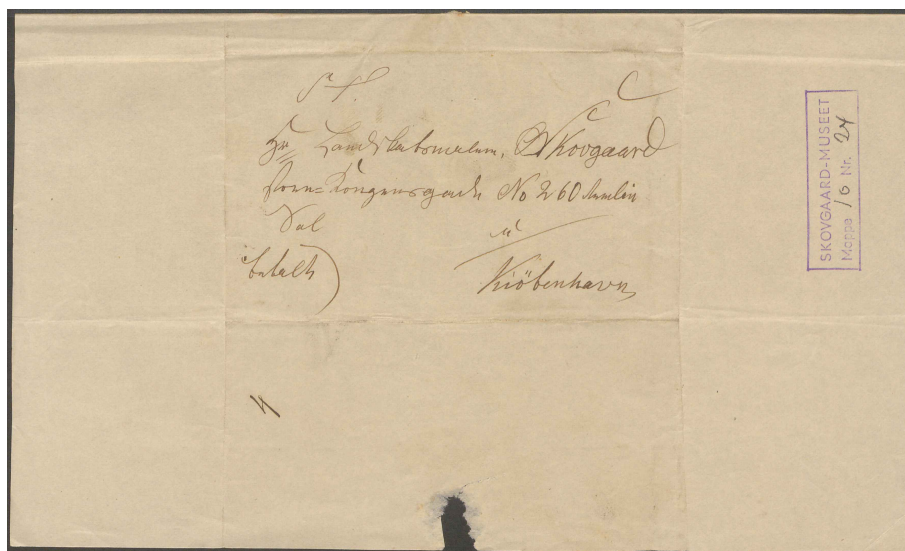 S. T.
Hr Landskabsmaler, P Skovgaard
store-Kongensgade No 260 anden
Sal
i
betalt)
Kiöbenhavn
SKOVGAARD-MUSEET
Mappe 16 Nr. 24